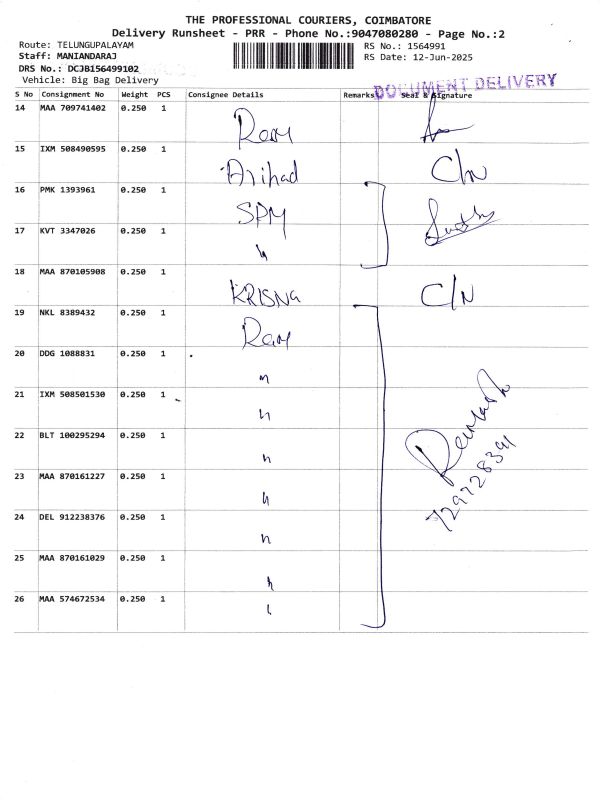 THE PROFESSIONAL COURIERS, COIMBATORE
Delivery Runsheet - PRR - Phone No.:9047080280 - Page No.:2
Route: TELUNGUPALAYAM RS No.: 1564991
Staff: MANIANDARAJ RS Date: 12-Jun-2025
DRS No.: DCJB156499102
Vehicle: Big Bag Delivery
DOCUMENT DELIVERY
S No Consignment No Weight PCS Consignee Details Remarks Seal & Signature
14 MAA 709741402 0.250 1
Ram
15 IXM 508490595 0.250 1
Arihad C/N
16 PMK 1393961 0.250 1
SPM
17 KVT 3347026 0.250 1
"
18 MAA 870105908 0.250 1
KRISNa C/N
19 NKL 8389432 0.250 1
Ram
20 DDG 1088831 0.250 1
"
21 IXM 508501530 0.250 1
"
22 BLT 100295294 0.250 1
"
23 MAA 870161227 0.250 1
"
24 DEL 912238376 0.250 1
"
25 MAA 870161029 0.250 1
"
26 MAA 574672534 0.250 1
"